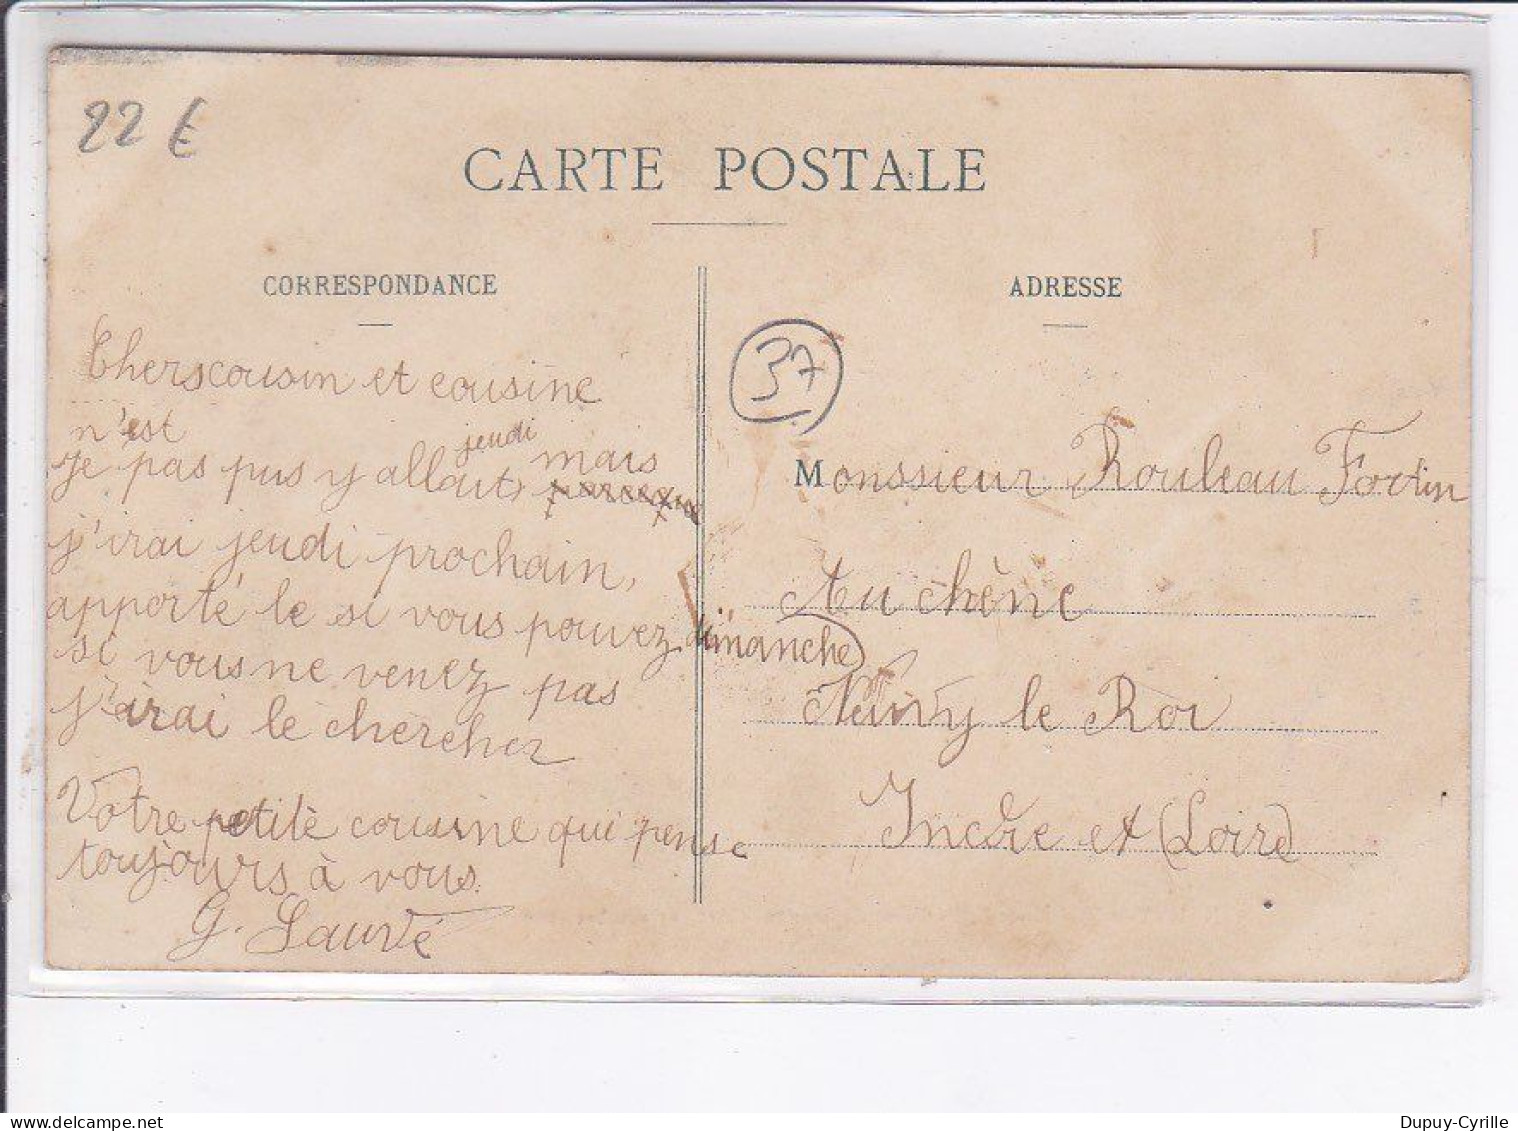 22 €
CARTE POSTALE
CORRESPONDANCE
Cherscousin et cousine
n'est
jeudi
je pas pus y allait, mais
j'irai jeudi prochain,
apporté le si vous pouvez dimanche
si vous ne venez pas
j'irai le cherchez
Votre petite cousine qui pense
toujours à vous.
G. Sauvé
37
ADRESSE
Monssieur Rouleau Fortin
Au chêne
Neuvy le Roi
Indre et (Loire)
Dupuy-Cyrille